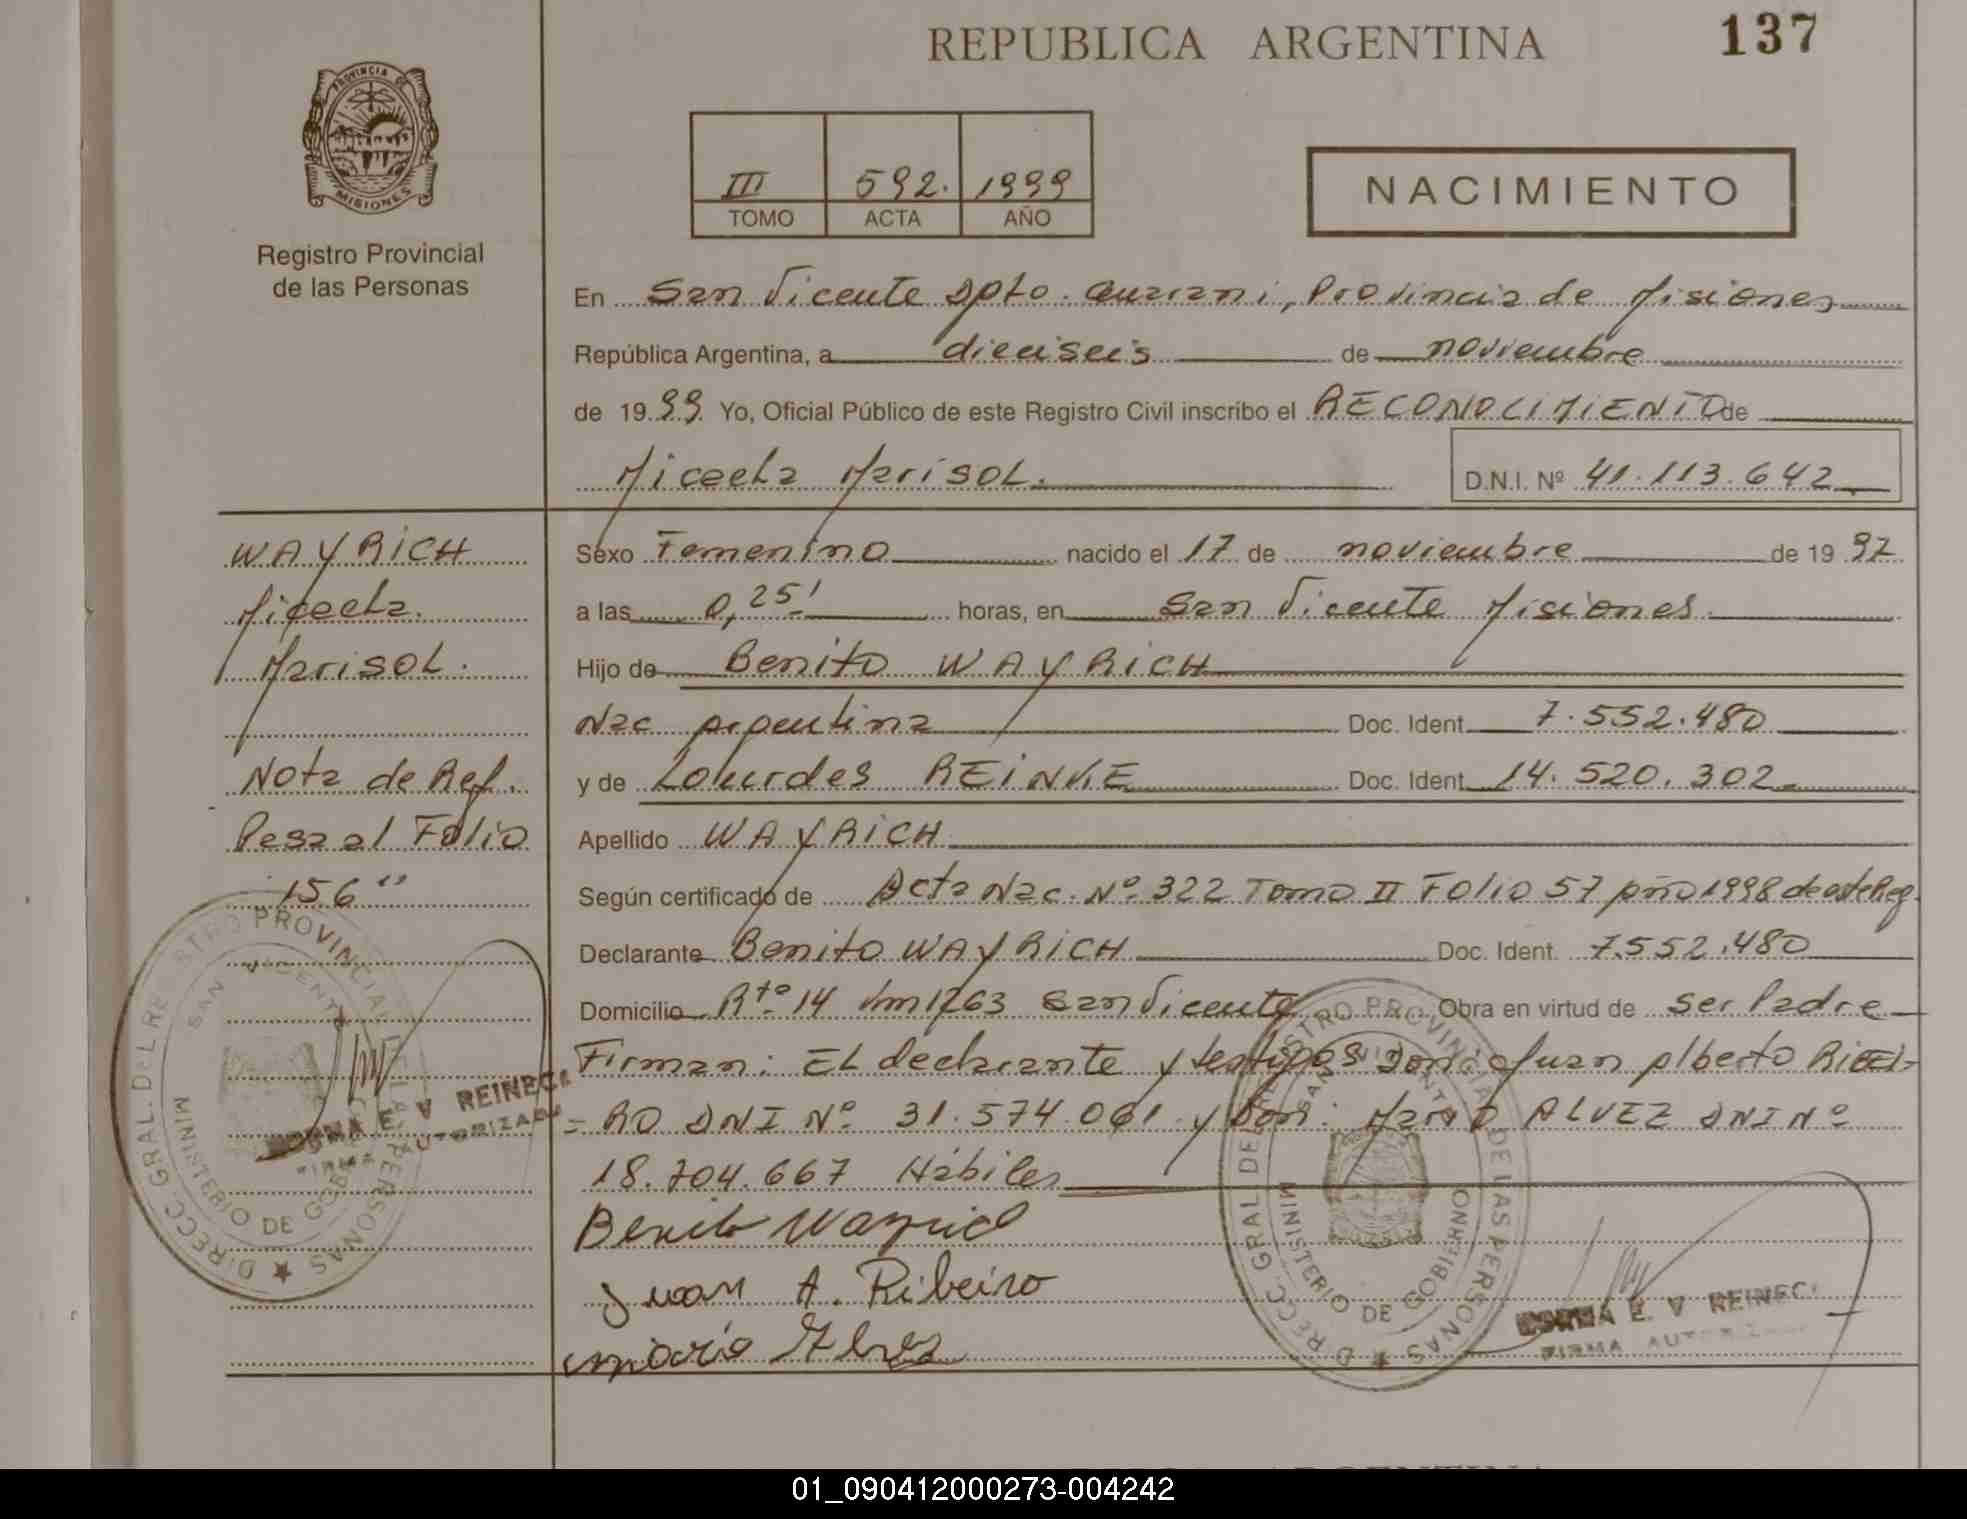 REPUBLICA ARGENTINA
137
PROVINCIA DE
MISIONES
Registro Provincial
de las Personas
III 592. 1999
TOMO ACTA AÑO
NACIMIENTO
En San Vicente Dpto. Guarani, Provincia de Misiones
República Argentina, a dieciseis de noviembre
de 1999 Yo, Oficial Público de este Registro Civil inscribo el RECONOCIMIENTO de
Micaela Marisol.
D.N.I. Nº 41.113.642
WAYRICH
Micaela
Marisol.
Nota de Ref.
Pasa al Folio
156"
Sexo Femenino nacido el 17 de noviembre de 1997
a las 0,25' horas, en San Vicente Misiones.
Hijo de Benito WAYRICH
Nac argentina Doc. Ident. 7.552.480
y de Lourdes REINKE Doc. Ident. 14.520.302
Apellido WAYRICH
Según certificado de Acta Nac. Nº 322 Tomo II Folio 57 año 1998 de este Reg.
Declarante Benito WAYRICH Doc. Ident. 7.552.480
Domicilio Rtº 14 km 1263 San Vicente Obra en virtud de Ser Padre
Firman: El declarante y testigos Don: Juan Alberto RIBEI-
=RO DNI Nº 31.574.061 y Don: Mario ALVEZ DNI Nº
18.704.667 Hábiles
Benito Wayrich
Juan A. Ribeiro
Mario Alvez
DIRECC. GRAL. DEL REGISTRO PROVINCIAL DE LAS PERSONAS
SAN VICENTE
MINISTERIO DE GOBIERNO
NORMA E. V REINECK
FIRMA AUTORIZADA
DIRECC. GRAL. DEL REGISTRO PROVINCIAL DE LAS PERSONAS
SAN VICENTE
MINISTERIO DE GOBIERNO
NORMA E. V REINECK
FIRMA AUTORIZADA
REPUBLICA ARGENTINA
01_090412000273-004242